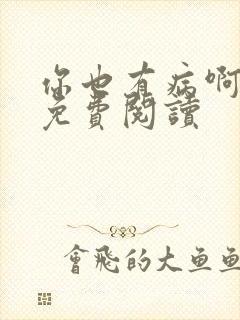 你也有病啊
免費閱讀
會飛的大魚魚